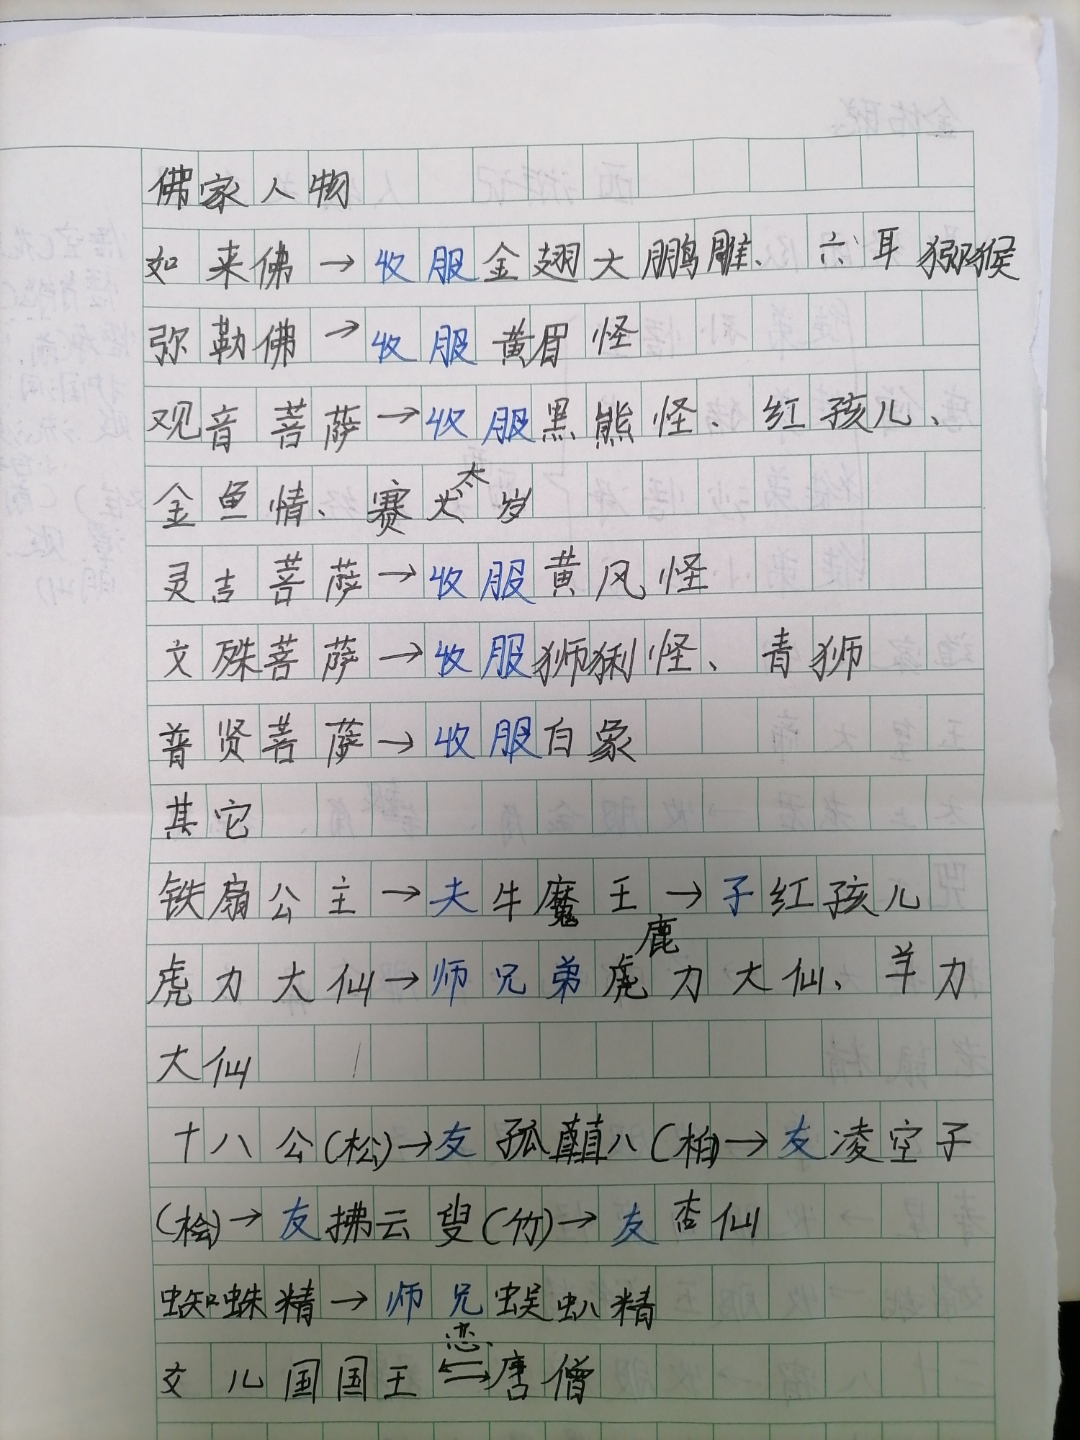 佛家人物
如来佛→收服金翅大鹏雕、六耳猕猴
弥勒佛→收服黄眉怪
观音菩萨→收服黑熊怪、红孩儿、
金鱼情、赛太岁
灵吉菩萨→收服黄风怪
文殊菩萨→收服狮猁怪、青狮
普贤菩萨→收服白象
其它
铁扇公主→夫牛魔王→子红孩儿
虎力大仙→师兄弟鹿力大仙、羊力
大仙
十八公(松)→友孤巅八(柏)→友凌空子
(桧)→友拂云叟(竹)→友杏仙
蜘蛛精→师兄蜈虯精
女儿国国王⇌恋唐僧